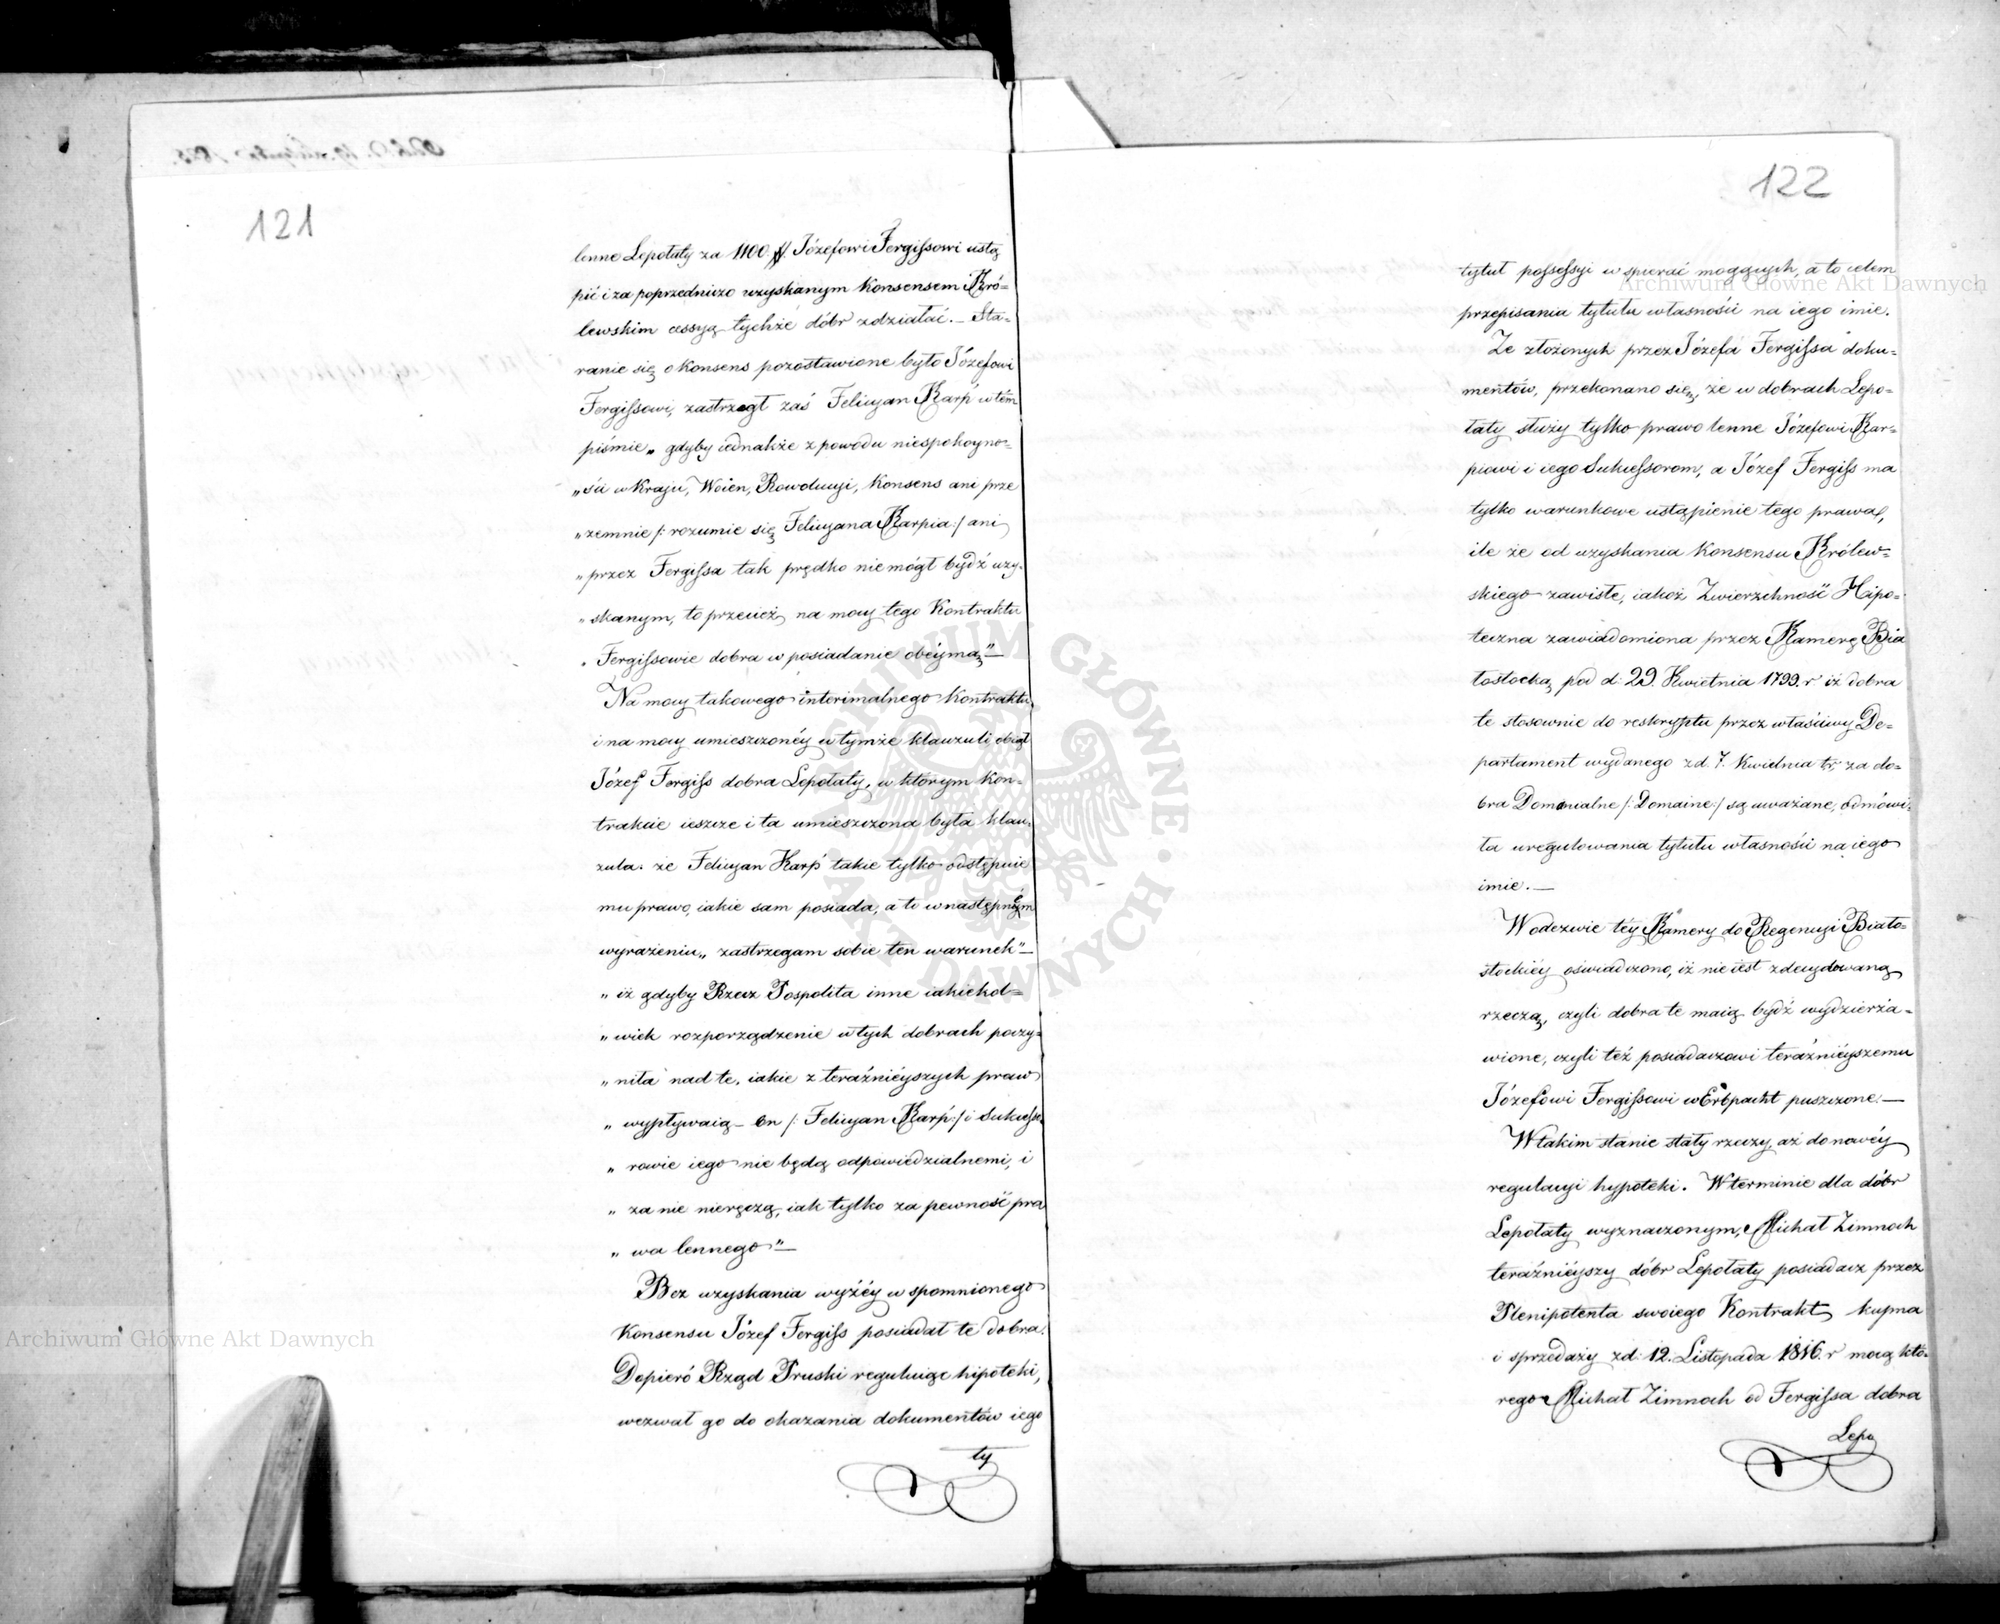 121
lenne Łepotaty za 1100 ƒƒ. Józefowi Fergiſsowi ustą
pić i za poprzedniczo uzyskanym Konsensem Kró-
lewskim cessyą tychże dóbr zdziałać. – Sta-
ranie się o Konsens pozostawione było Józefowi
Fergiſsowi, zastrzegł zaś Felicyan Karp w tém
piśmie „ gdyby iednakże z powodu niespokoyno-
„ści w Kraju, Woien, Rewolucyi, Konsens ani prze
„zemnie /: rozumie się Felicyana Karpia :/ ani
„przez Fergiſsa tak prędko nie mógł bydź uzy-
„skanym, to przecież na mocy tego Kontraktu
„Fergiſsowie dobra w posiadanie obeymą" —
Na mocy takowego interimalnego Kontraktu
i na mocy umieszczonéy w tymże klauzuli obiął
Józef Fergiſs dobra Łepotaty, w którym Kon-
trakcie ieszcze i ta umieszczona była klau-
zula. że Felicyan Karp takie tylko odstępuie
mu prawo, iakie sam posiada, a to w następném
wyrażeniu „ zastrzegam sobie ten warunek" —
„ iż gdyby Rzecz Pospolita inne iakiekol=
„ wiek rozporządzenie w tych dobrach poczy=
„ niła nad te, iakie z teraźniéyszych praw
„ wypływaią – on /: Felicyan Karp :/ i Sukceſso
„ rowie iego nie będą odpowiedzialnemi, i
„ za nie nieręczą, iak tylko za pewność pra
„ wa lennego" —
Bez uzyskania wyżéy wspomnionego
Konsensu Józef Fergiſs posiadał te dobra.
Dopiéro Rząd Pruski reguluiąc hipoteki,
wezwał go do okazania dokumentów iego
ty
122
tytuł poſseſsyi wspierać mogących, a to celem
przepisania tytułu własności na iego imie.
Ze złożonych przez Józefa Fergiſsa doku-
mentów, przekonano się, że w dobrach Łepo-
taty służy tylko prawo lenne Józefowi Kar-
piowi i iego Sukceſsorom, a Józef Fergiſs ma
tylko warunkowe ustąpienie tego prawa,
ile że od uzyskania Konsensu Królew-
skiego zawisłe, iakoż Zwierzchność Hipo-
teczna zawiadomiona przez Kamerę Bia
łostocką pod d. 29. Kwietnia 1799. r iż dobra
te stosownie do reskryptu przez właściwy De-
partament wydanego z d 7. Kwietnia t.r. za do-
bra Domanialne /: Domaine :/ są uważane, odmówi-
ła uregulowania tytułu własności na iego
imie. —
W odezwie téy Kamery do Regencyi Biało-
stockiéy oświadczono, iż nie iest zdecydowaną
rzeczą, czyli dobra te maią bydź wydzierża-
wione, czyli też posiadaczowi teraźniéyszemu
Józefowi Fergiſsowi w Erbpacht puszczone. —
W takim stanie stały rzeczy aż do nowéy
regulacyi hypoteki. W terminie dla dóbr
Łepotaty wyznaczonym, Michał Zimnoch
teraźniéyszy dóbr Łepotaty posiadacz przez
Plenipotenta swoiego Kontrakt kupna
i sprzedaży z d. 12. Listopada 1816. r mocą któ-
rego Michał Zimnoch od Fergiſsa dobra
Łepo
Archiwum Główne Akt Dawnych
Archiwum Główne Akt Dawnych
ARCHIWUM GŁÓWNE • AKT DAWNYCH •